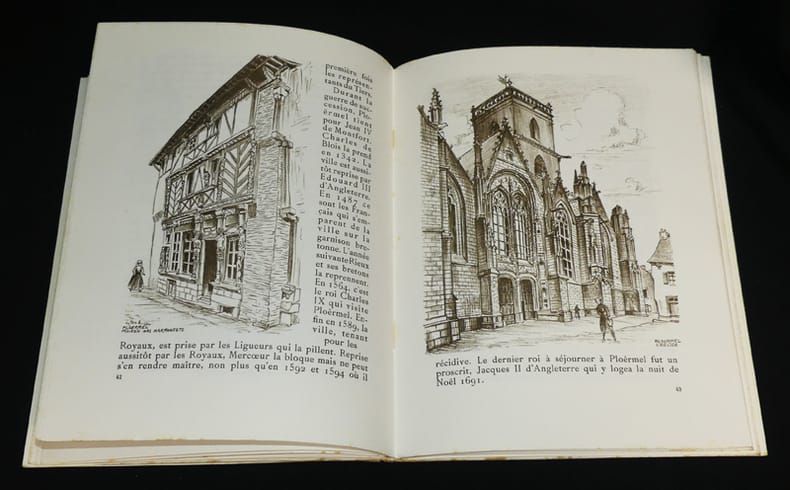 première fois
les représen-
tants du Tiers.
Durant la
guerre de suc-
cession, Plo-
ërmel tient
pour Jean IV
de Montfort.
Charles de
Blois la prend
en 1342. La
ville est aussi-
tôt reprise par
Edouard III
d'Angleterre.
En 1487 ce
sont les Fran-
çais qui s'em-
parent de la
ville sur la
garnison bre-
tonne. L'année
suivante Rieux
et ses bretons
la reprennent.
En 1564, c'est
le roi Charles
IX qui visite
Ploërmel. En-
fin en 1589, la
ville, tenant
pour les
Royaux, est prise par les Ligueurs qui la pillent. Reprise
aussitôt par les Royaux, Mercœur la bloque mais ne peut
s'en rendre maître, non plus qu'en 1592 et 1594 où il
PLOERMEL
MAISON DES MARMOUSETS
62
PLOERMEL
L'EGLISE
récidive. Le dernier roi à séjourner à Ploërmel fut un
proscrit, Jacques II d'Angleterre qui y logea la nuit de
Noël 1691.
63